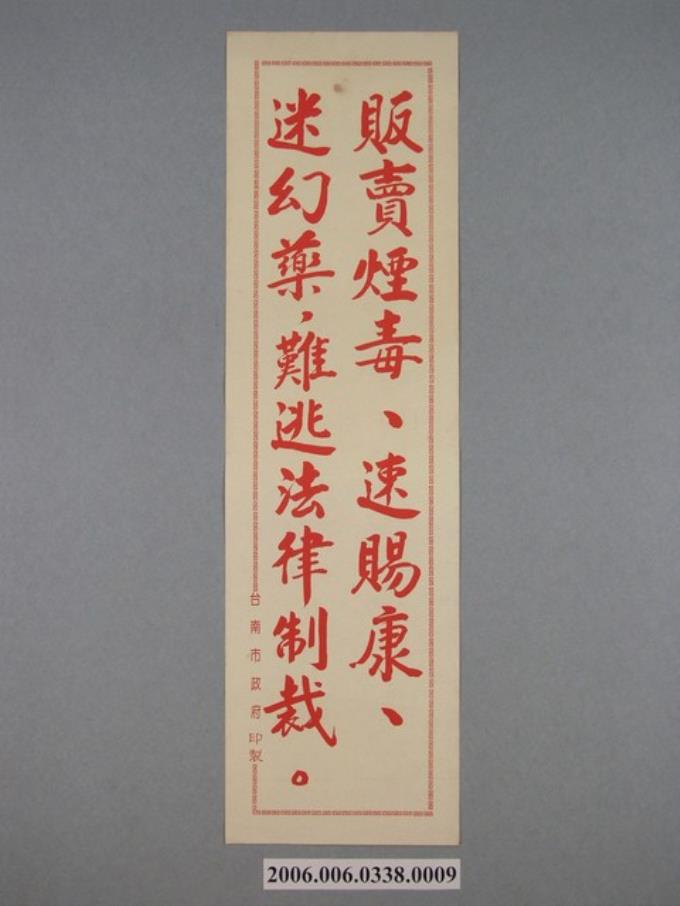 販賣煙毒、速賜康、
迷幻藥，難逃法律制裁。
台南市政府印製
2006.006.0338.0009